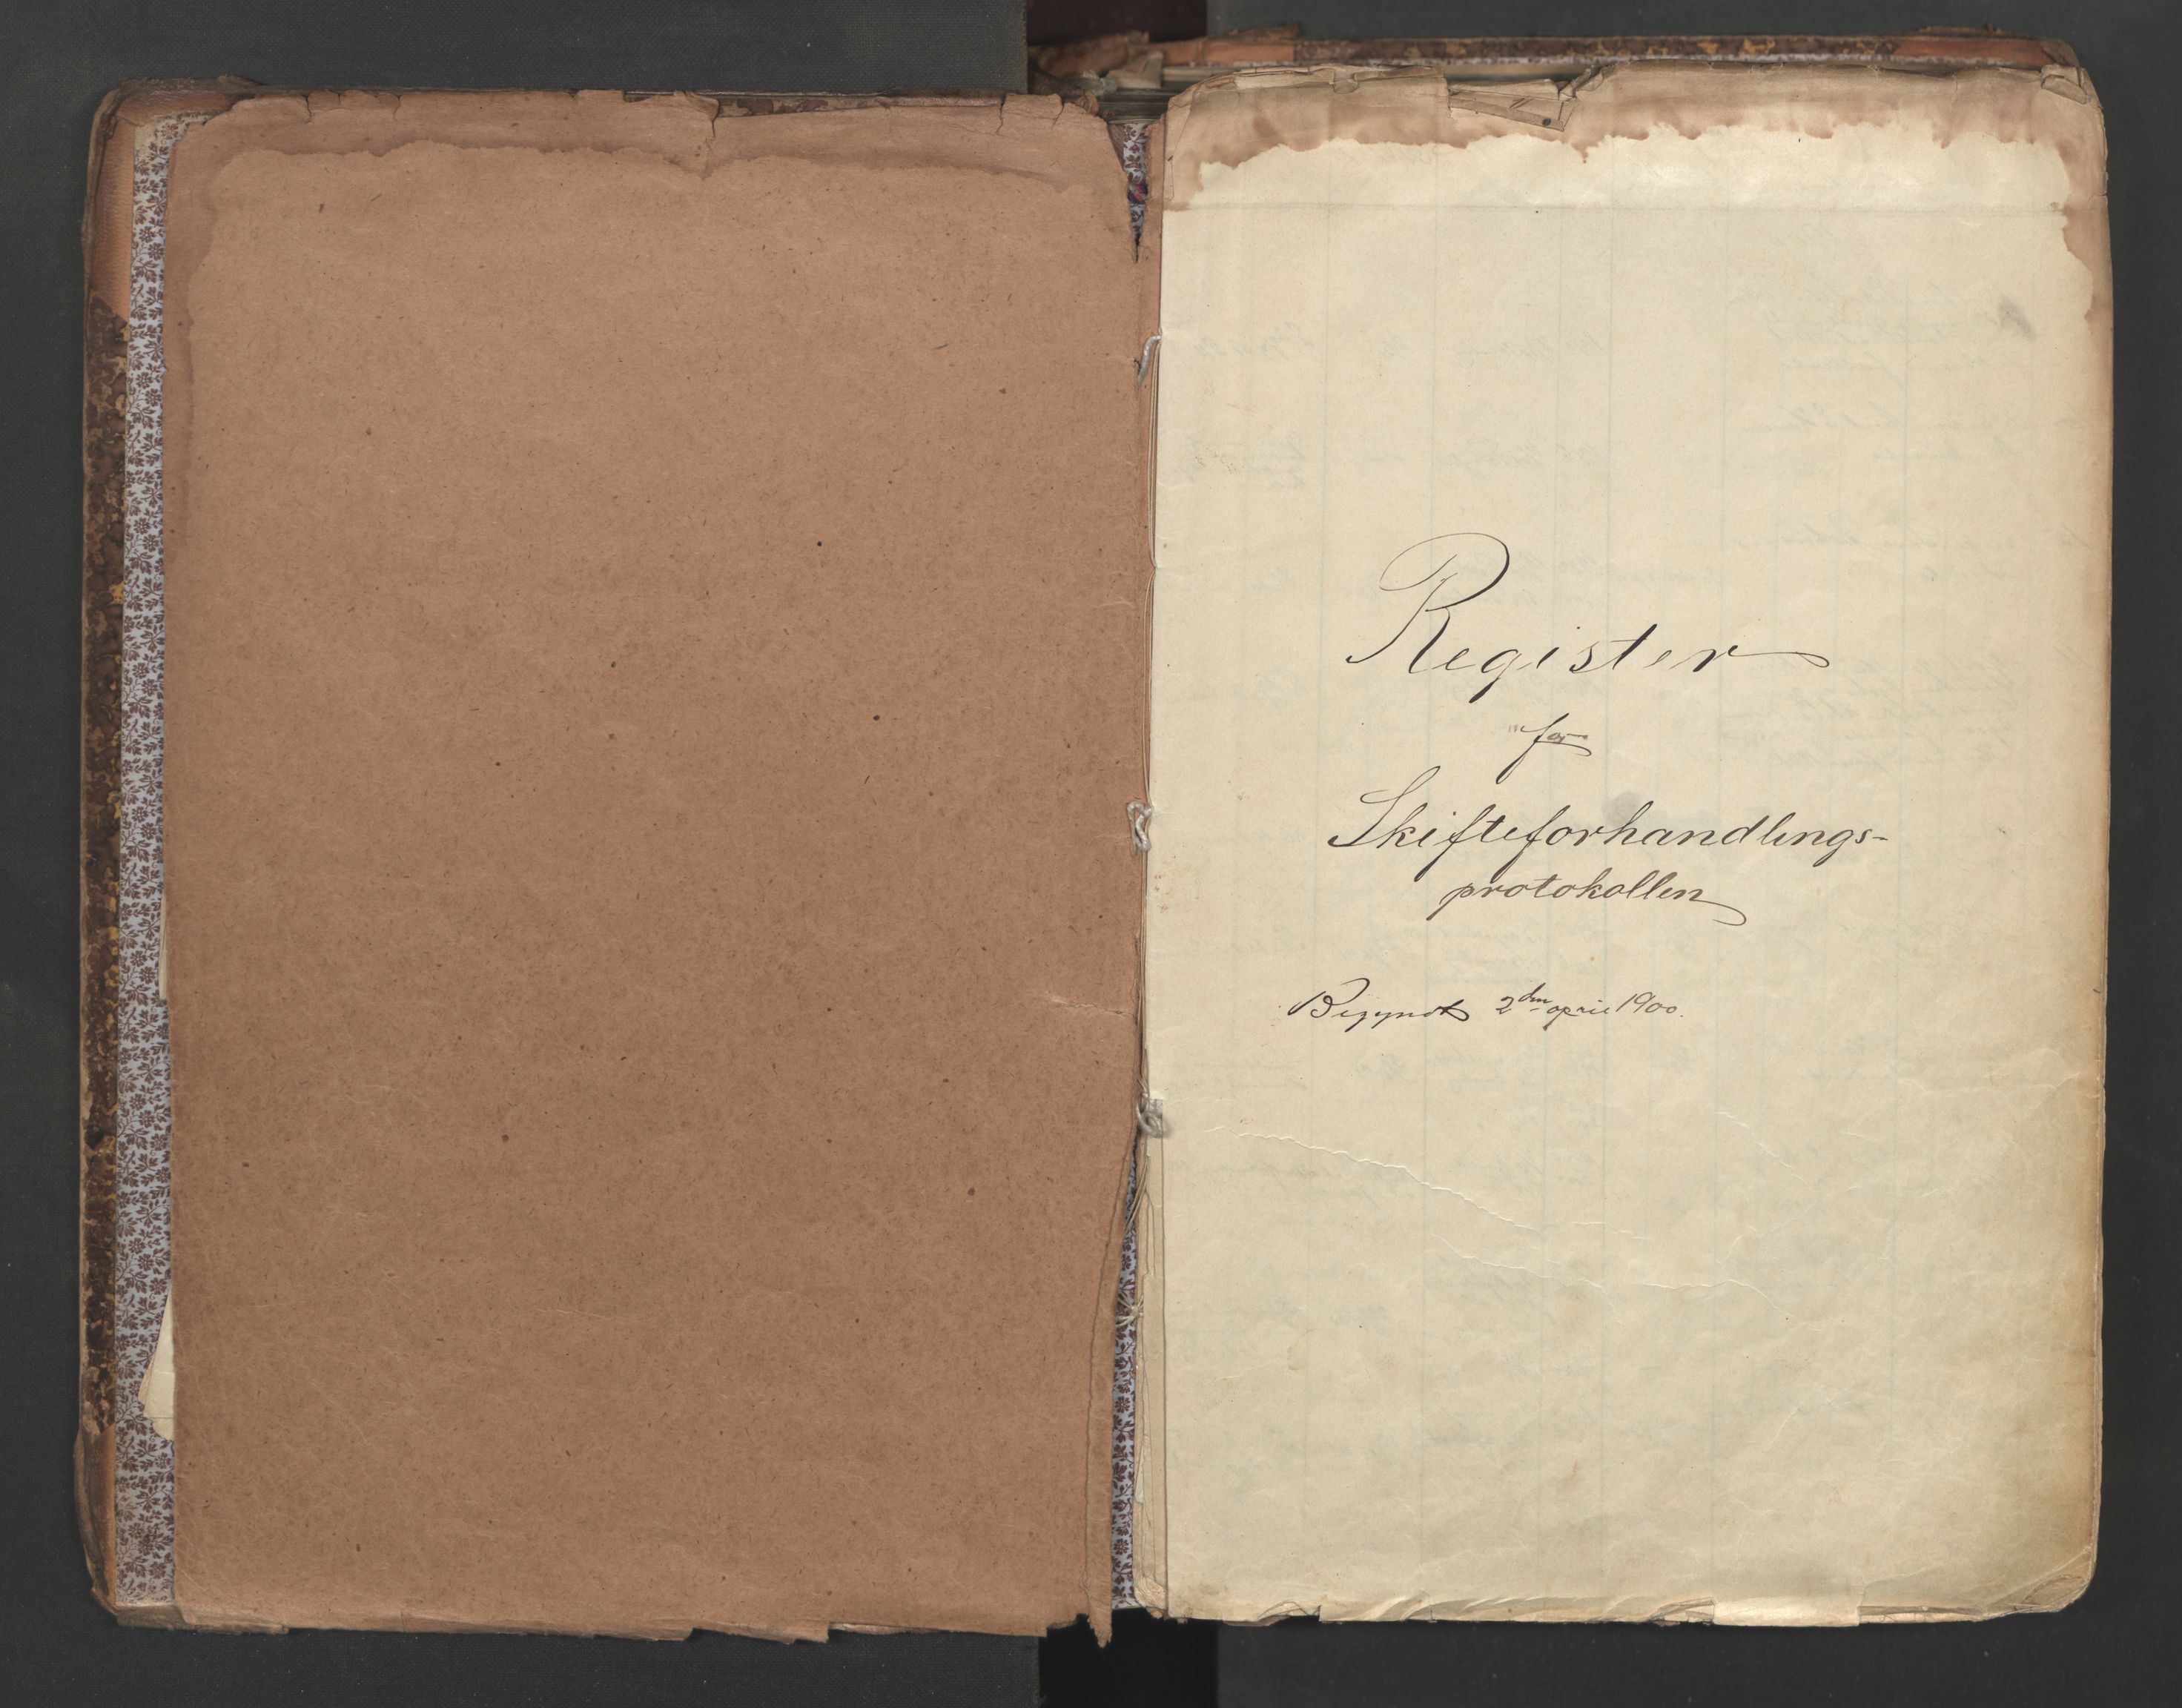 Register
for
Skifteforhandlings-
protokollen
Begyndt 2den april 1900.